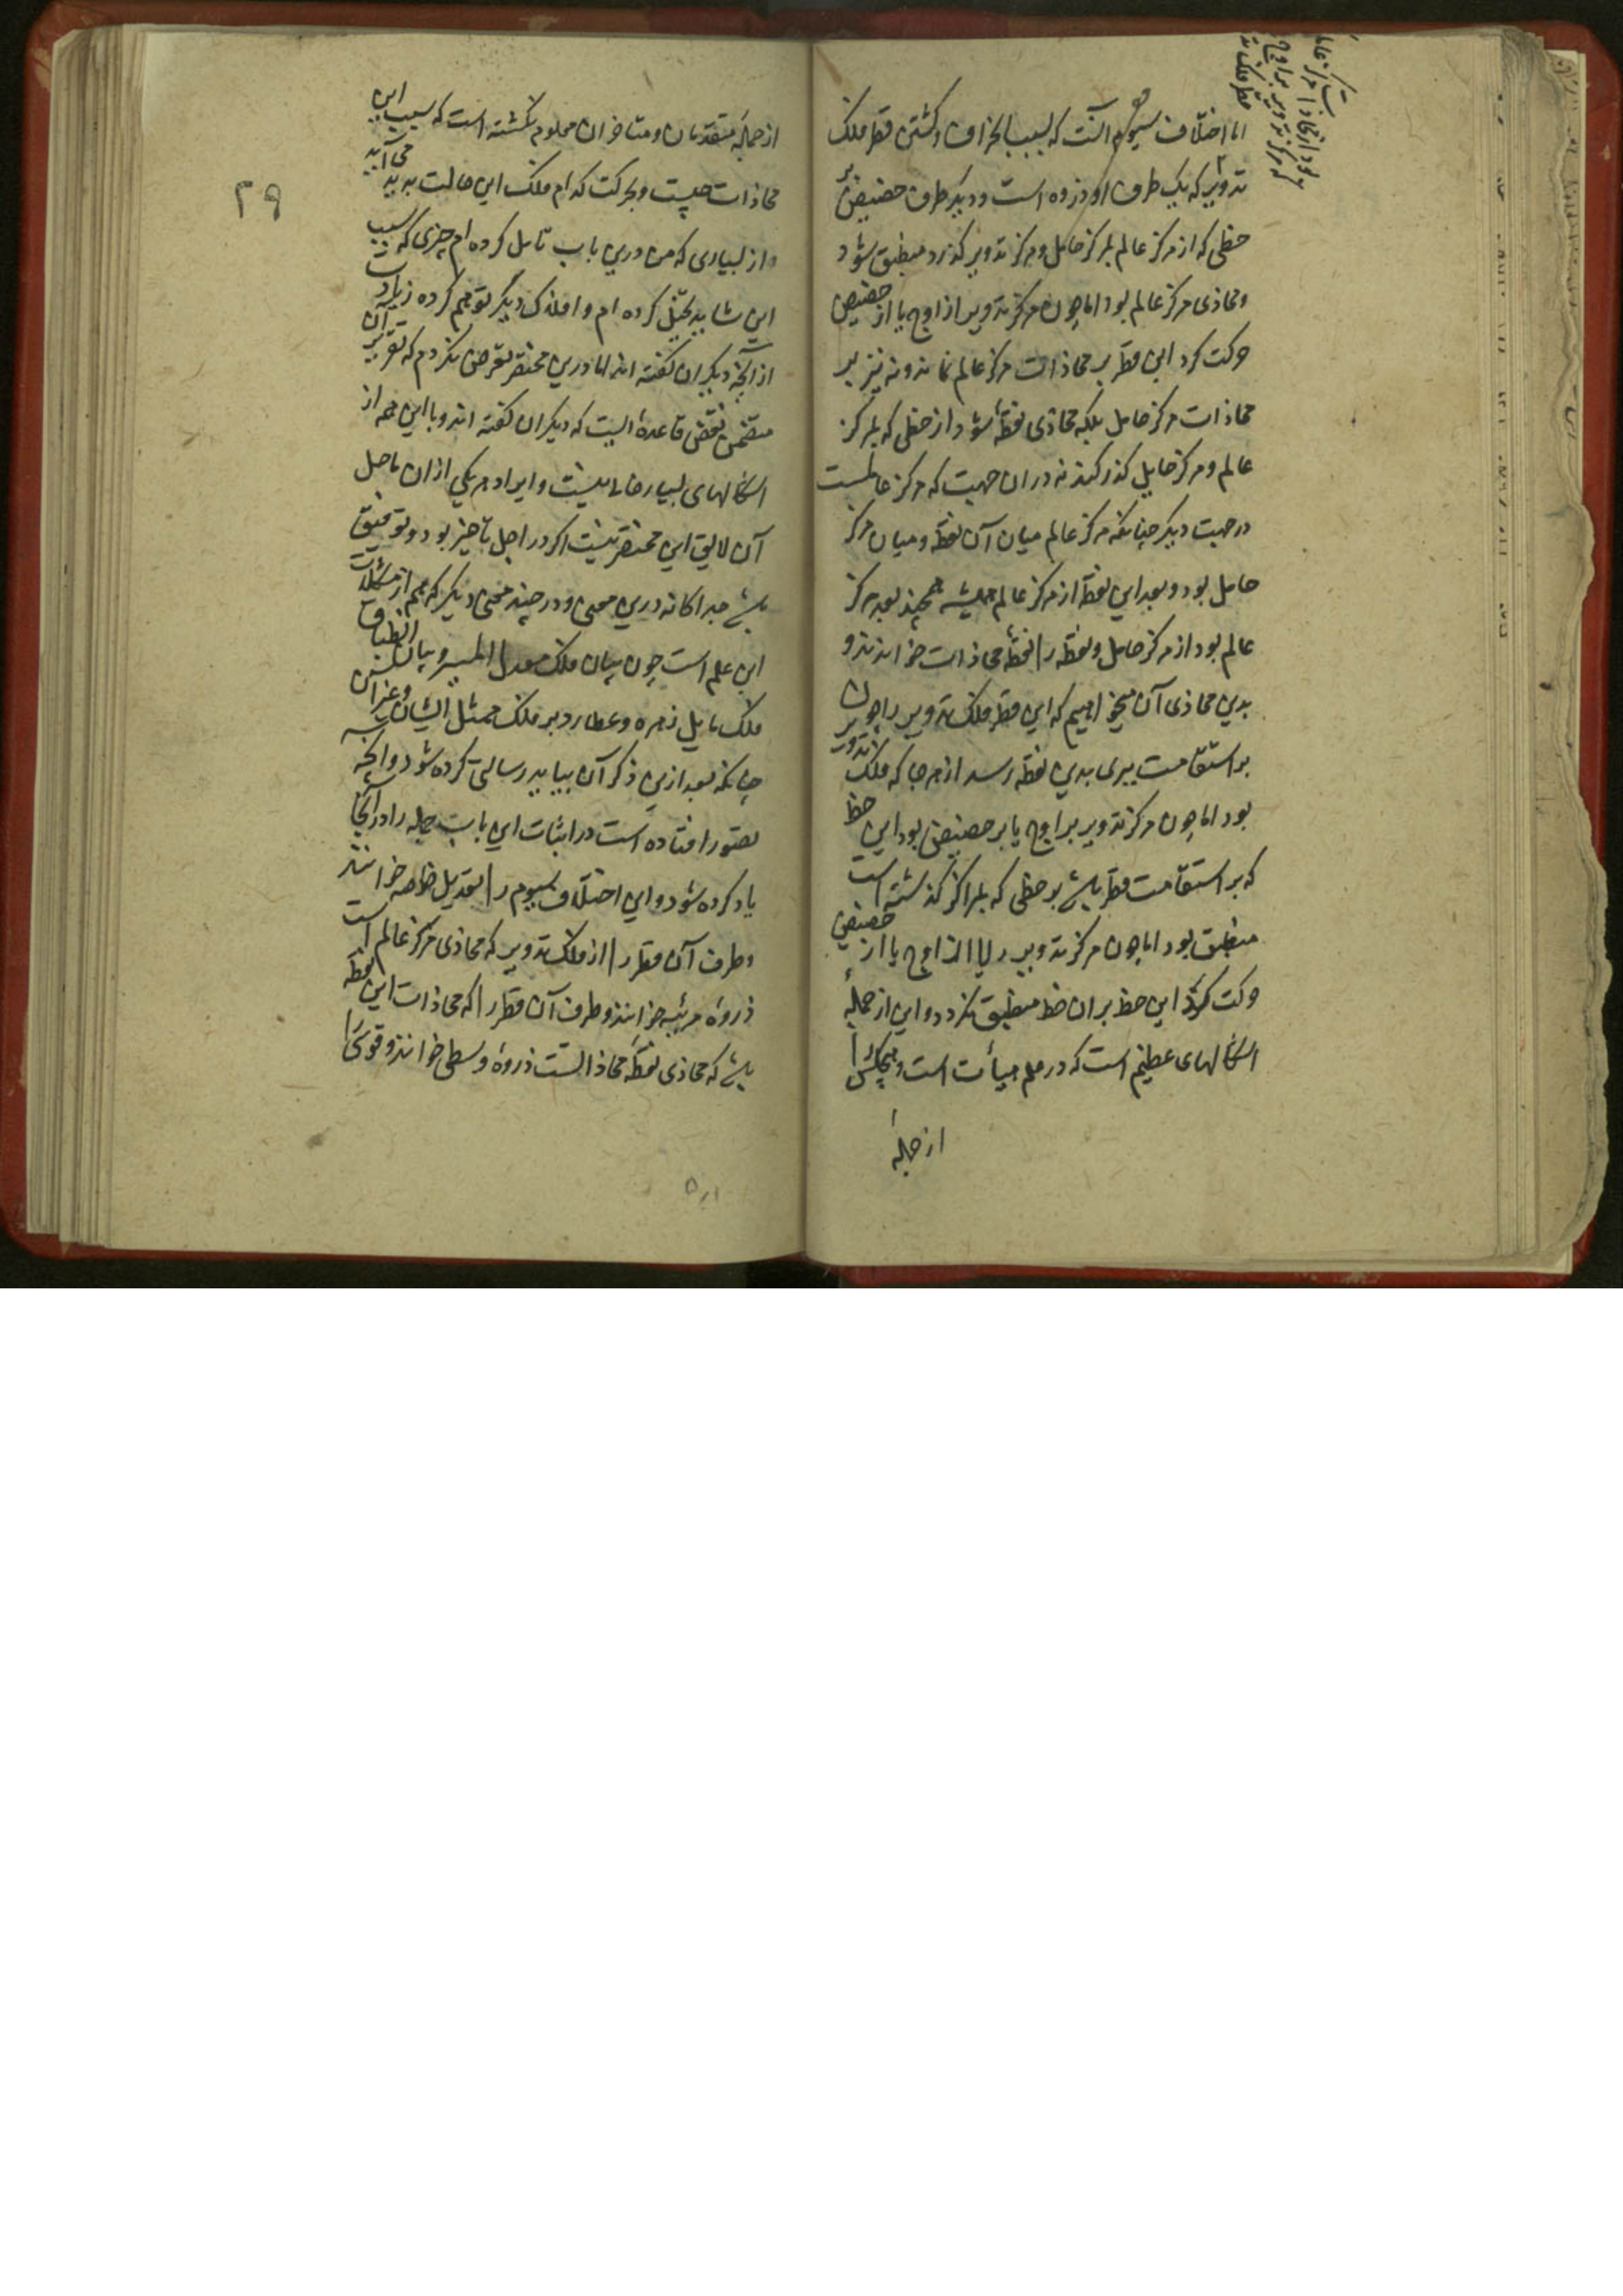 اما اختلاف سیوم آنست که بسبب انحراف و کشتن قطر فلک
تدویر که یک طرف او ذروه است و دیکر طرف حضیض بر
خطی که از مرکز عالم بمرکز حامل و مرکز تدویر کذرد منطبق شود
و محاذی مرکز عالم بود اما چون مرکز تدویر از اوج یا از حضیض
حرکت کرد این قطر بر محاذات مرکز عالم نماند و نه نیز بر
محاذات مرکز حامل بلکه محاذی نقطهٔ شود از خطی که بمرکز
عالم و مرکز حامل کذر کند نه دران جهت که مرکز عالمست
در جهت دیکر چنانکه مرکز عالم میان آن نقطه و میان مرکز
حامل بود و بعد این نقطه از مرکز عالم همیشه همچند بعد مرکز
عالم بود از مرکز حامل و نقطه را نقطهٔ محاذات خوانند و
بدین محاذی آن میخواهیم که این قطر فلک تدویر را چون
بر استقامت ببری بدین نقطه رسد از هر جا که فلک تدویر
بود اما چون مرکز تدویر بر اوج یا بر حضیض بود این خط
که بر استقامت قطر باشد بر خطی که بمراکز کذشته است
منطبق بود اما چون مرکز تدویر از اوج یا از حضیض
حرکت کرد این خط بران خط منطبق نکردد و این از جملهٔ
اشکالهای عظیم است که در علم هیأت است و هیچکس را
از جملهٔ
۲۹
از جملهٔ متقدمان و متاخران معلوم نکشته است که سبب این
محاذات چیست و بحرکت کدام فلک این حالت پدید می آید
و از بسیاری که من درین باب تامل کرده ام چیزی که سبب
این شاید تخیل کرده ام و افلاک دیگر توهم کرده زیادت
از آنچه دیکران کفته اند اما درین مختصر تعرض نکردم که تقریر آن
متضمن نقض قاعدهٔ ایست که دیکران کفته اند و با این همه از
اشکالهای بسیار خالی نیست و ایراد هر یکی ازان با حل
آن لایق این مختصر نیست اکر در اجل تاخیر بود و توفیق
باشد جداکانه درین معنی و در چند معنی دیکر که هم از مشکلات
این علم است چون بیان فلک معدل المسیر و بیان انطباق
فلک مایل زهره و عطارد بر فلک ممثل ایشان و غیر آن
چنانکه بعد ازین ذکر آن بیاید رسالتی کرده شود و آنچه
بتصور افتاده است در اثبات این باب جمله را در آنجا
یاد کرده شود و این اختلاف سیوم را تعدیل خاصه خوانند
و طرف آن قطر را از فلک تدویر که محاذی مرکز عالم است
ذروهٔ مرئیه خوانند و طرف آن قطر را که محاذات این نقطه
باشد که محاذی نقطهٔ محاذاتست ذروهٔ وسطی خوانند و قوسی را